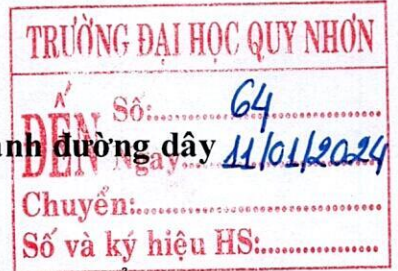 TRƯỜNG ĐẠI HỌC QUY NHƠN
ĐẾN
Số: 64
anh đường dây
Ngày 11/01/2024
Chuyển:
Số và ký hiệu HS: